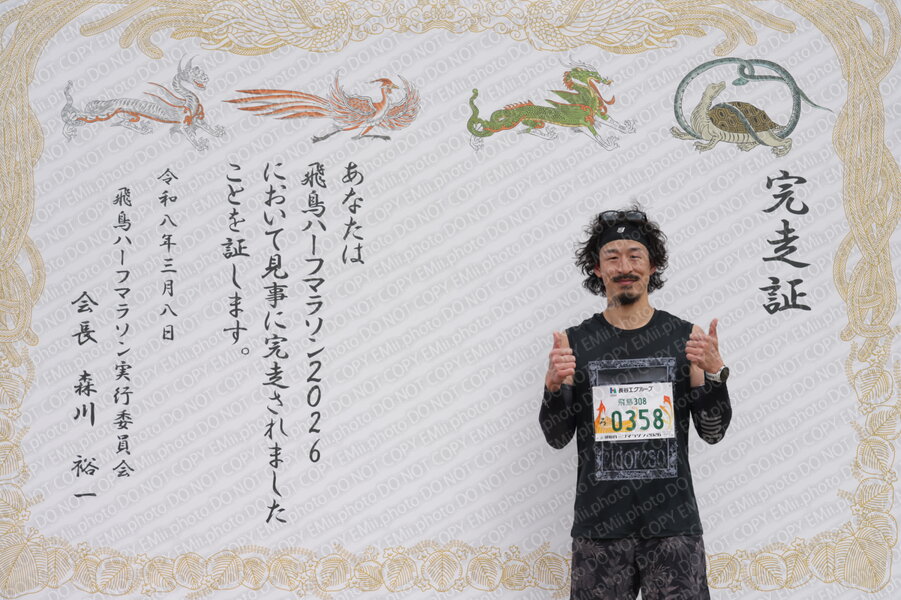 完走証
あなたは
飛鳥ハーフマラソン2026
において見事に完走されました
ことを証します。
令和八年三月八日
飛鳥ハーフマラソン実行委員会
会長 森川 裕一
長谷工グループ
飛鳥308
0358
eldoreso
DO NOT COPY EMii.photo